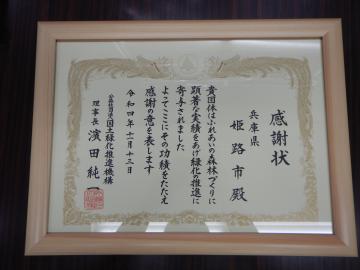 感謝状
兵庫県
姫路市殿
貴団体はふれあいの森林づくりに
顕著な実績をあげ緑化の推進に
寄与されました
よってここにその功績をたたえ
感謝の意を表します
令和四年十一月十三日
公益社団法人国土緑化推進機構
理事長 濱田純一